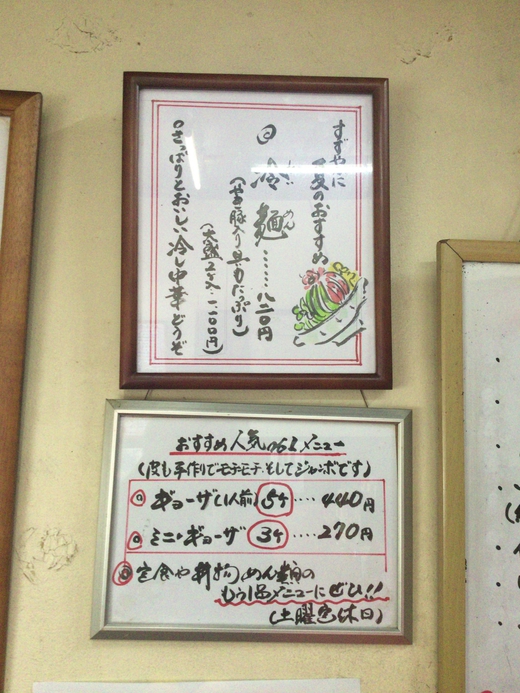 すずやに
夏のおすすめ
冷麺……八二〇円
れい めん
(焼豚入り具もたっぷり)
(大盛2玉入…一一〇〇円)
さっぱりとおいしい冷し中華どうぞ
おすすめ人気No.1メニュー
(皮も手作りでモチモチ、そしてジャンボです)
ギョーザ(1人前)5ヶ‥‥440円
ミニ・ギョーザ 3ヶ‥‥270円
定食や料物めん類の
もう1品メニューにぜひ!!
(土曜定休日)